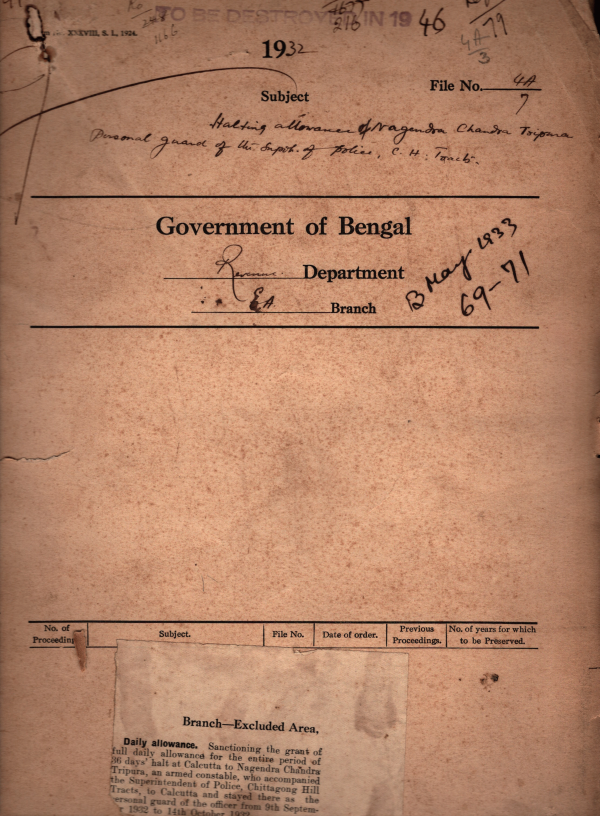 TO BE DESTROYED IN 19 46
XXXVIII, S. I., 1924.
1932
4A
3
File No. 4A
7
Subject
Halting allowance of Nagendra Chandra Tripura
Personal guard of the Supdt. of Police, C. H. Tracts.
Government of Bengal
Revenue Department
EA Branch
B May 1933
69-71
No. of Proceeding
Subject.
File No.
Date of order.
Previous Proceedings.
No. of years for which to be Preserved.
Branch—Excluded Area,
Daily allowance. Sanctioning the grant of
full daily allowance for the entire period of
36 days' halt at Calcutta to Nagendra Chandra
Tripura, an armed constable, who accompanied
the Superintendent of Police, Chittagong Hill
Tracts, to Calcutta and stayed there as the
personal guard of the officer from 9th Septem-
r 1932 to 14th October 1932